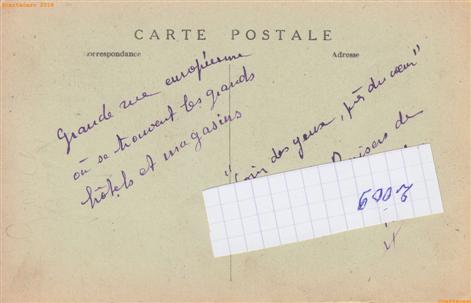 Delcampe 2018
CARTE POSTALE
Correspondance
Adresse
Grande rue européenne
où se trouvent les grands
hôtels et magasins
"Loin des yeux, près du cœur"
Baisers de